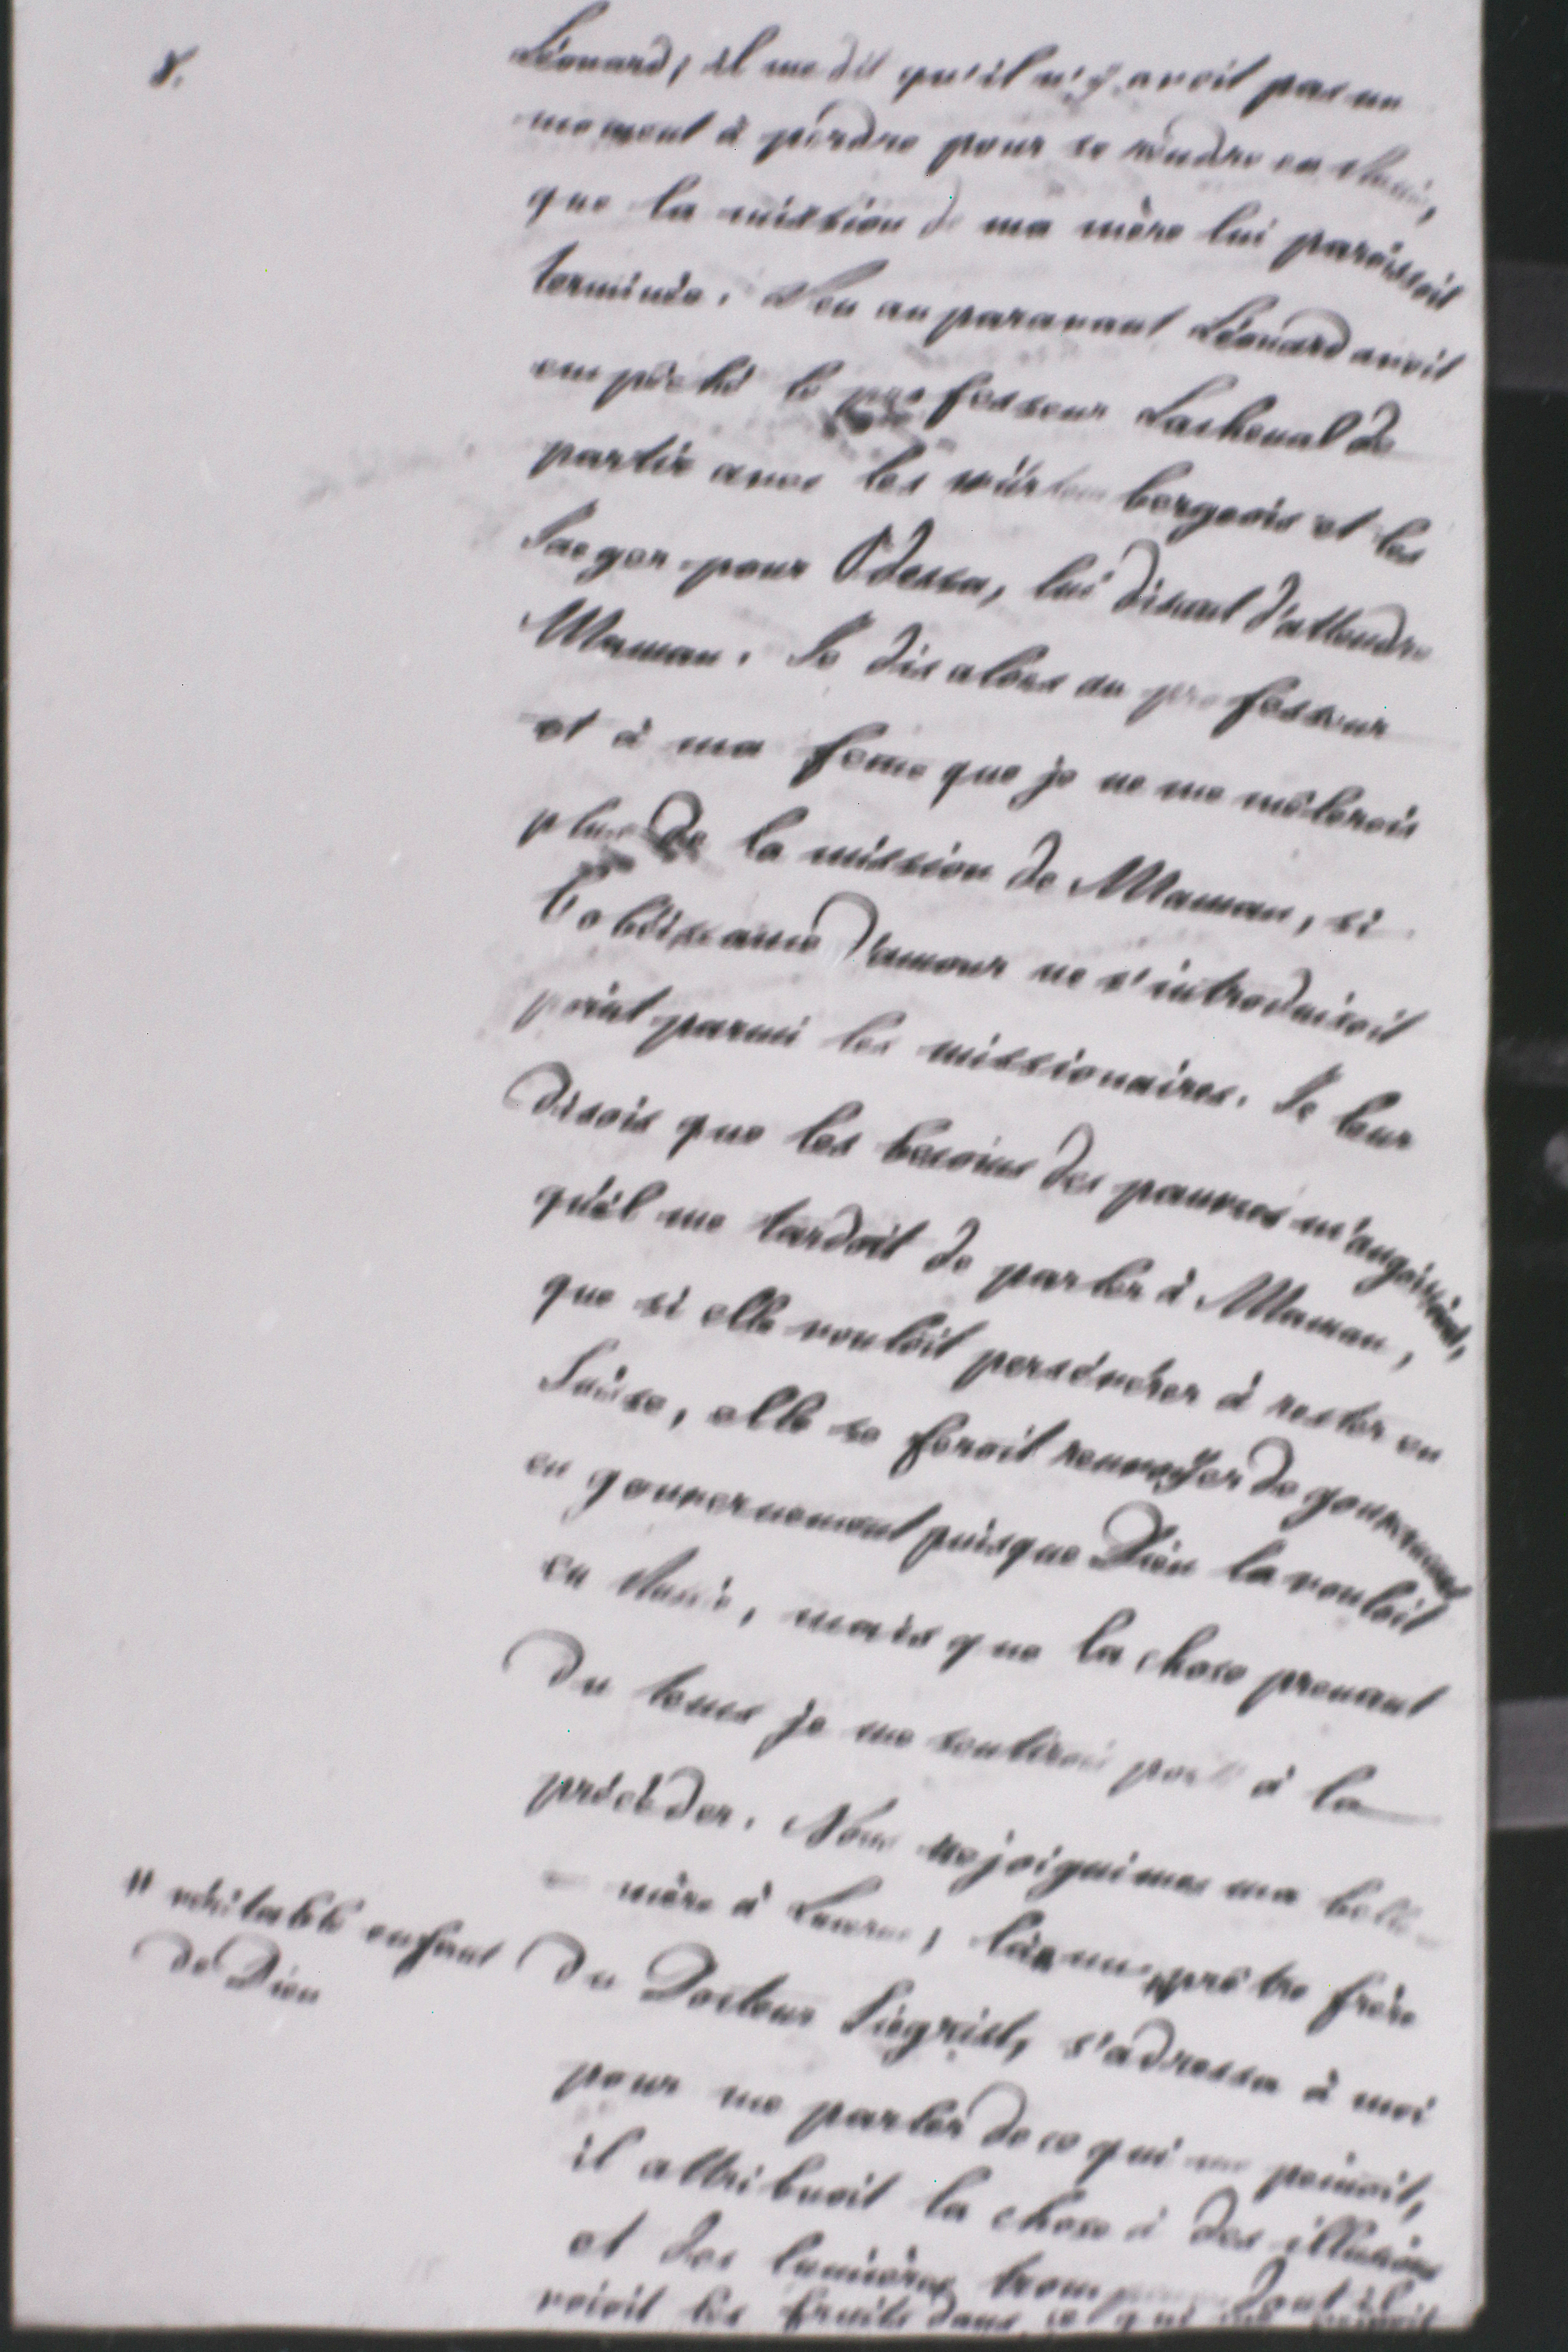 8.
Léonard, il me dit qu'il n'y avoit pas un
moment à perdre pour se rendre en Russie,
que la mission de ma mère lui paroissoit
terminée. Peu auparavant Léonard avoit
empêché le professeur Lachenal de
partir avec les würtembergeois et les
Jaeger pour Odessa, lui disant d'attendre
Maman. Je dis alors au professeur
et à ma feme que je ne me mêlerois
plus de la mission de Maman, si
l'obéissance d'amour ne s'introduisoit
point parmi les missionaires. Je leur
disois que les besoins des pauvres m'angoissoient,
qu'il me tardoit de parler à Maman,
que si elle vouloit persévérer à rester en
Suisse, elle se feroit renvoyer de gouvernement
en gouvernement puisque Dieu la vouloit
en Russie, mais que la chose prenant
du tems je me sentirois porté à la
précéder. Nous rejoignimes ma belle
mère à Lucerne, là un " prêtre frère
" véritable enfant
de Dieu
du Docteur Siegrist, s'adressa à moi
pour me parler de ce qui me peinoit,
il attribuoit la chose à des illusions
et des lumières dont il
voioit les fruits dans ce qui me peinoit